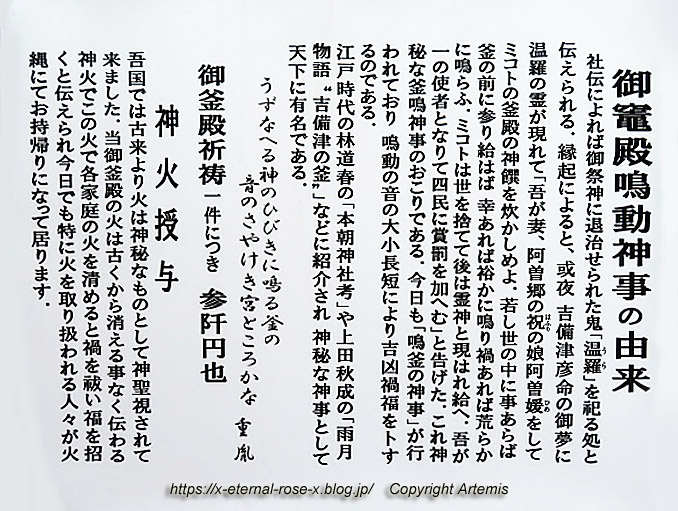 御竈殿鳴動神事の由来
社伝によれば御祭神に退治せられた鬼「温羅」を祀る処と
うら
伝えられる．縁起によると、或夜 吉備津彦命の御夢に
温羅の霊が現れて「吾が妻、阿曽郷の祝の娘阿曽媛をして
はふり
ひめ
ミコトの釜殿の神饌を炊かしめよ．若し世の中に事あらば
釜の前に参り給はは 幸あれば裕かに鳴り禍あれば荒らか
に鳴らふ．ミコトは世を捨てて後は霊神と現はれ給へ．吾が
一の使者となりて四民に賞罰を加へむ」と告げた．これ神
秘な釜鳴神事のおこりである．今日も「鳴釜の神事」が行
われており 鳴動の音の大小長短により吉凶禍福を卜す
るのである．
江戸時代の林道春の「本朝神社考」や上田秋成の「雨月
物語 “吉備津の釜”」などに紹介され 神秘な神事として
天下に有名である．
うずなへる神のひびきに鳴る釜の
音のさやけき宮どころかな 重胤
御釜殿祈祷 一件につき 参阡円也
神火授与
吾国では古来より火は神秘なものとして神聖視されて
来ました．当御釜殿の火は古くから消える事なく伝わる
神火でこの火で各家庭の火を清めると禍を祓い福を招
くと伝えられ今日でも特に火を取り扱われる人々が火
縄にてお持帰りになって居ります．
https://x-eternal-rose-x.blog.jp/ Copyright Artemis